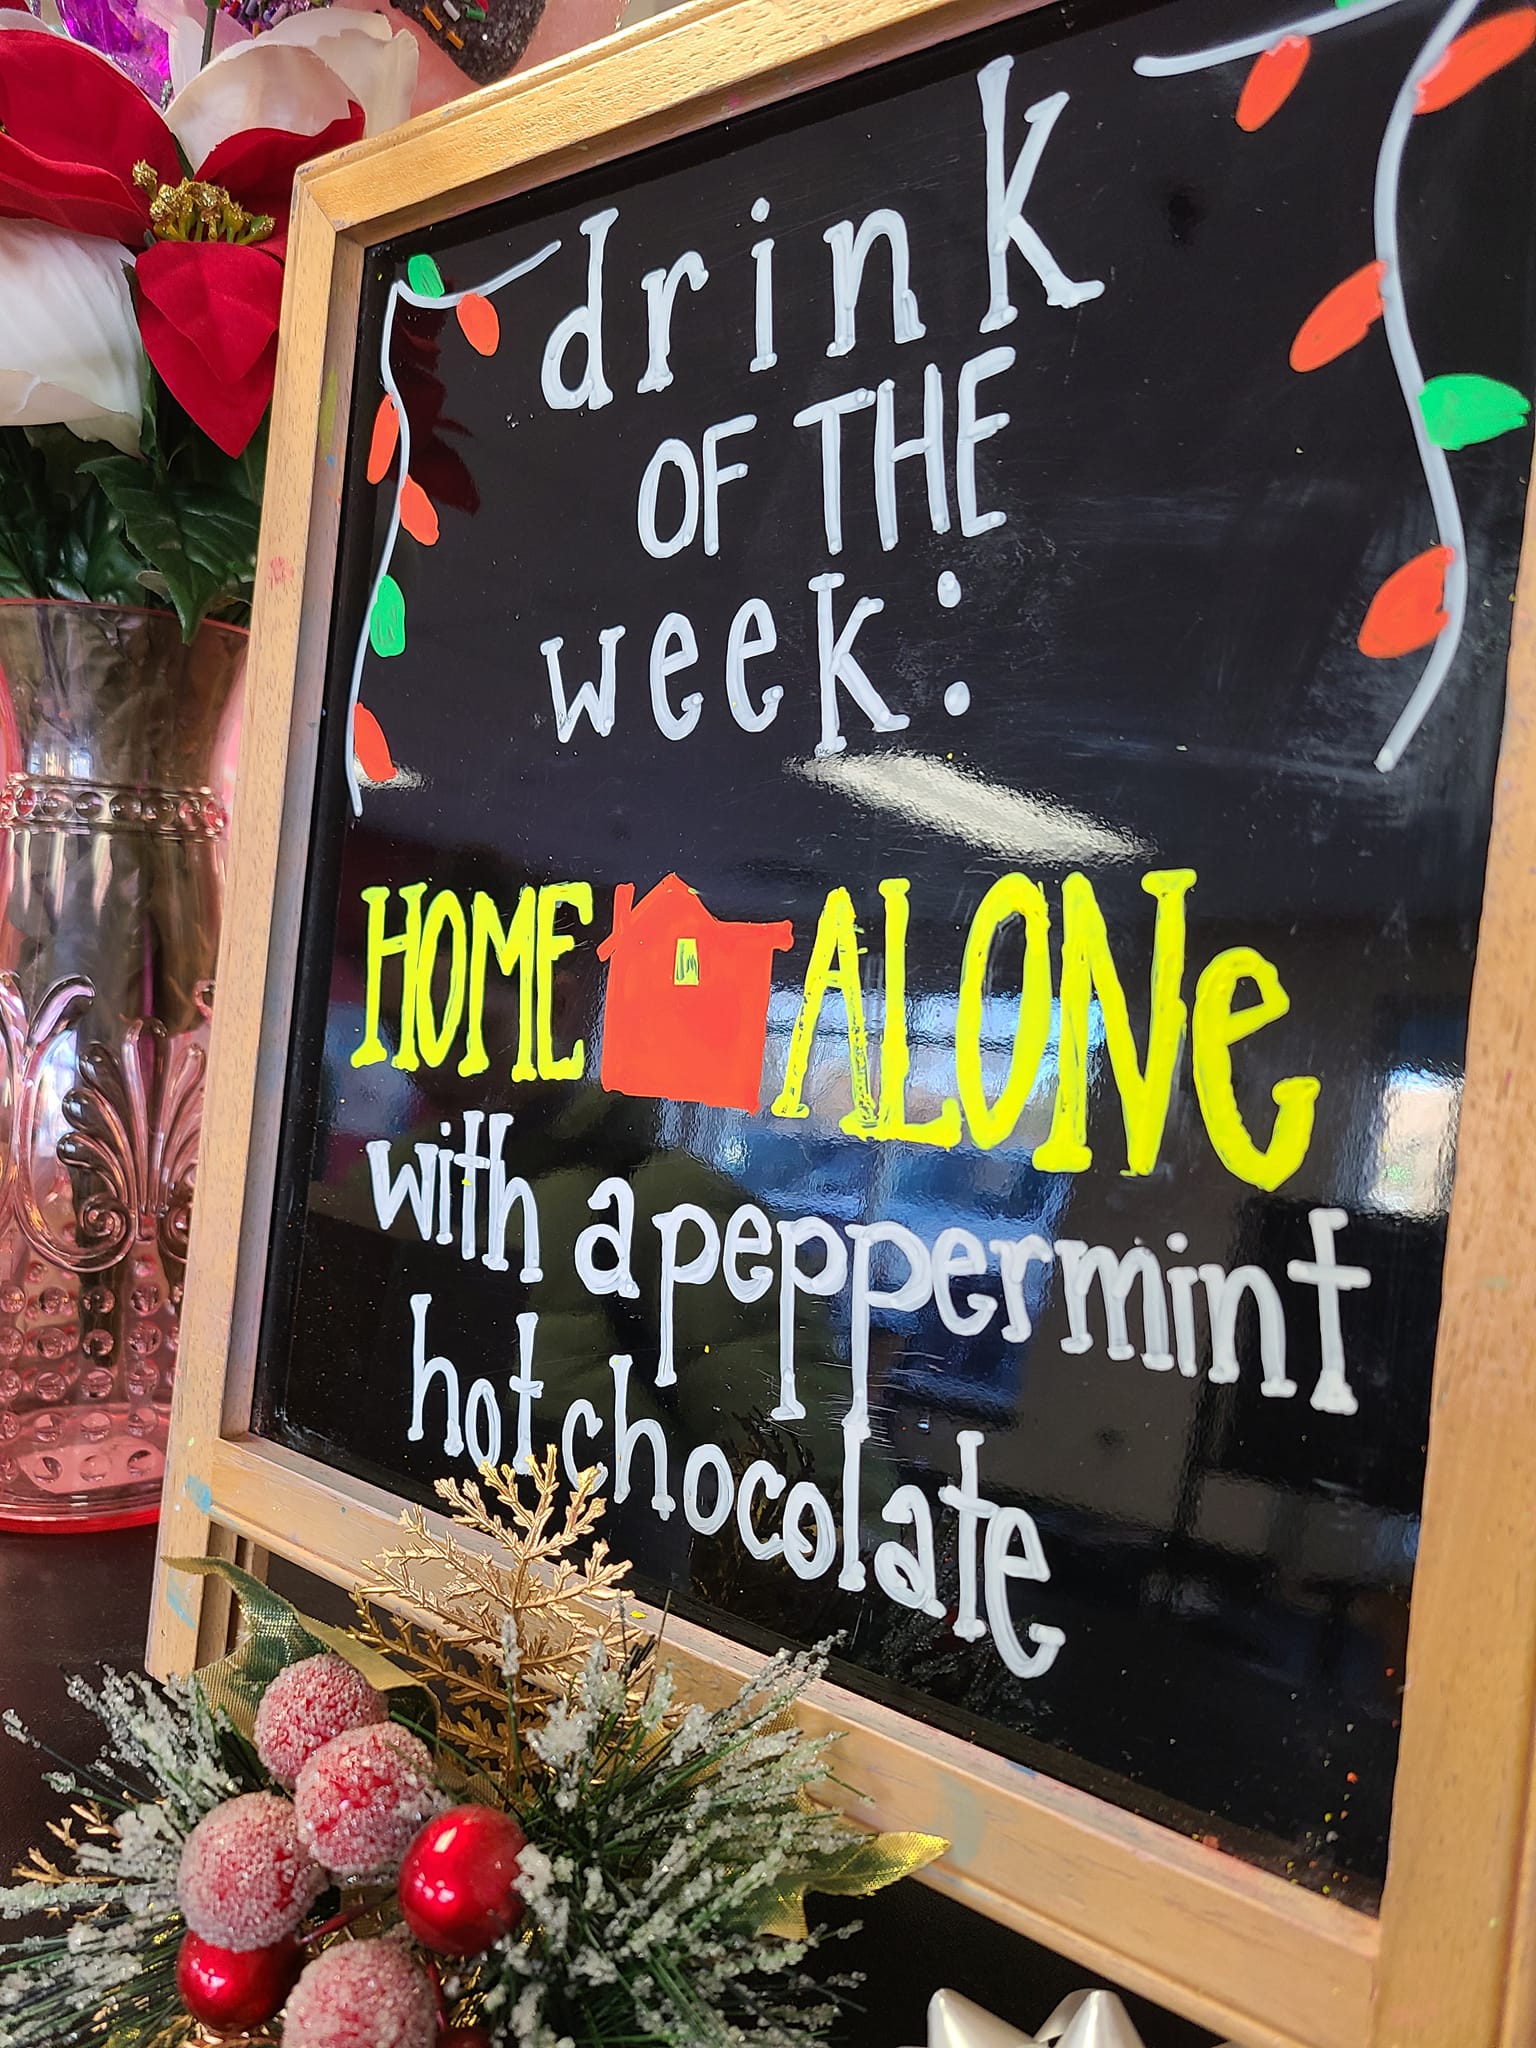 drink
OF THE
week:
HOME ALONe
with a peppermint
hot chocolate